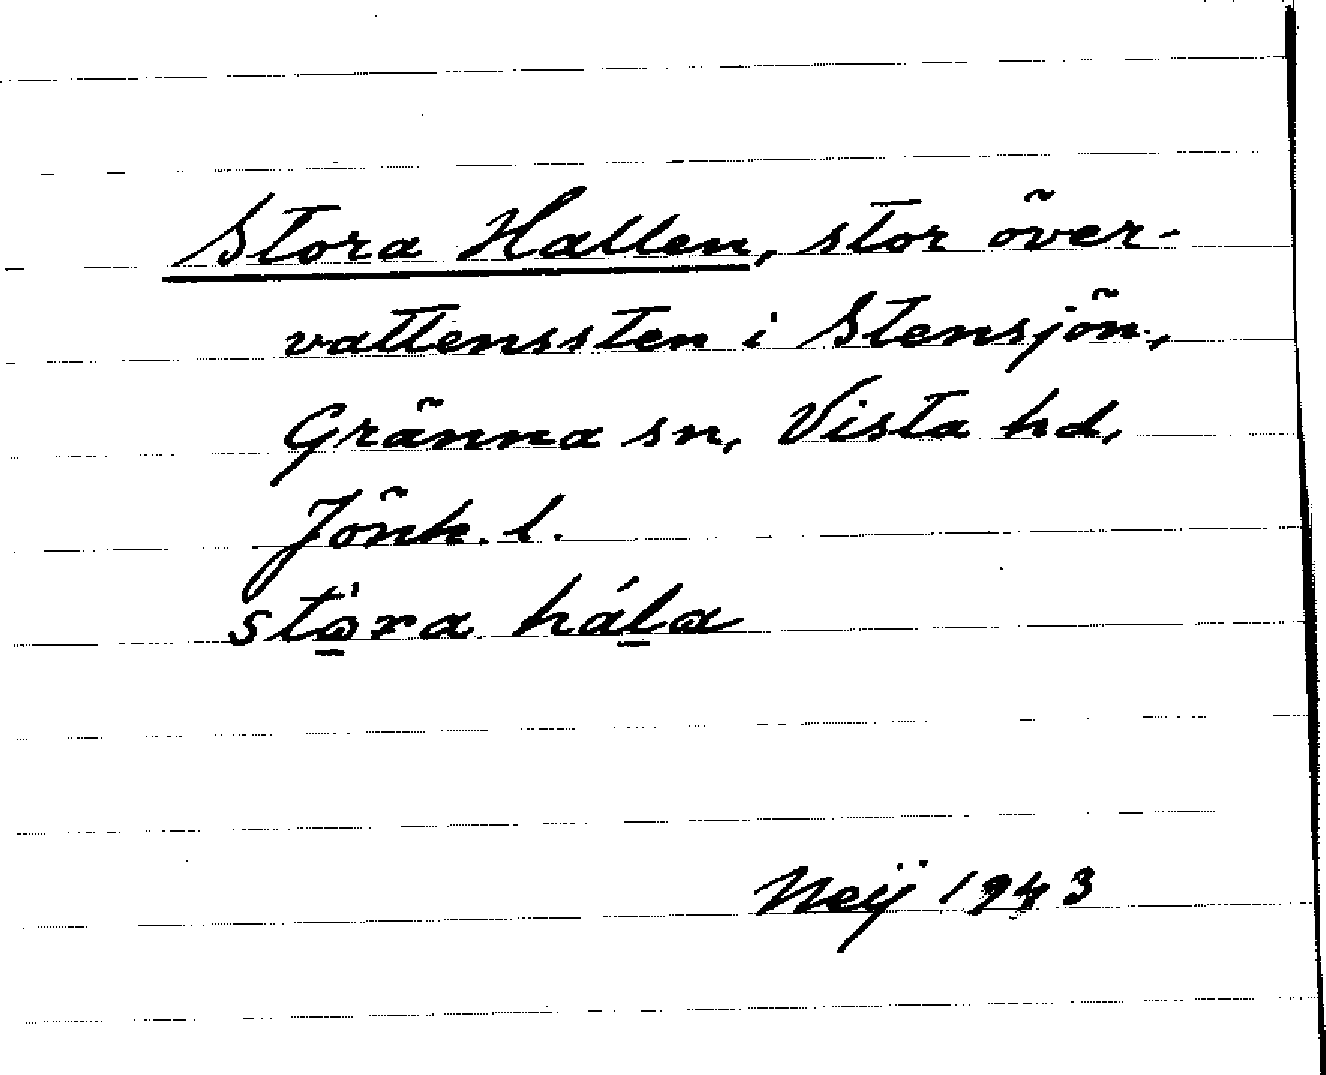 Stora Hallen, stor över-
vattenssten i Stensjön,
Gränna sn, Vista hd,
Jönk. l.
stò̱ra háḻa
Neij 1943